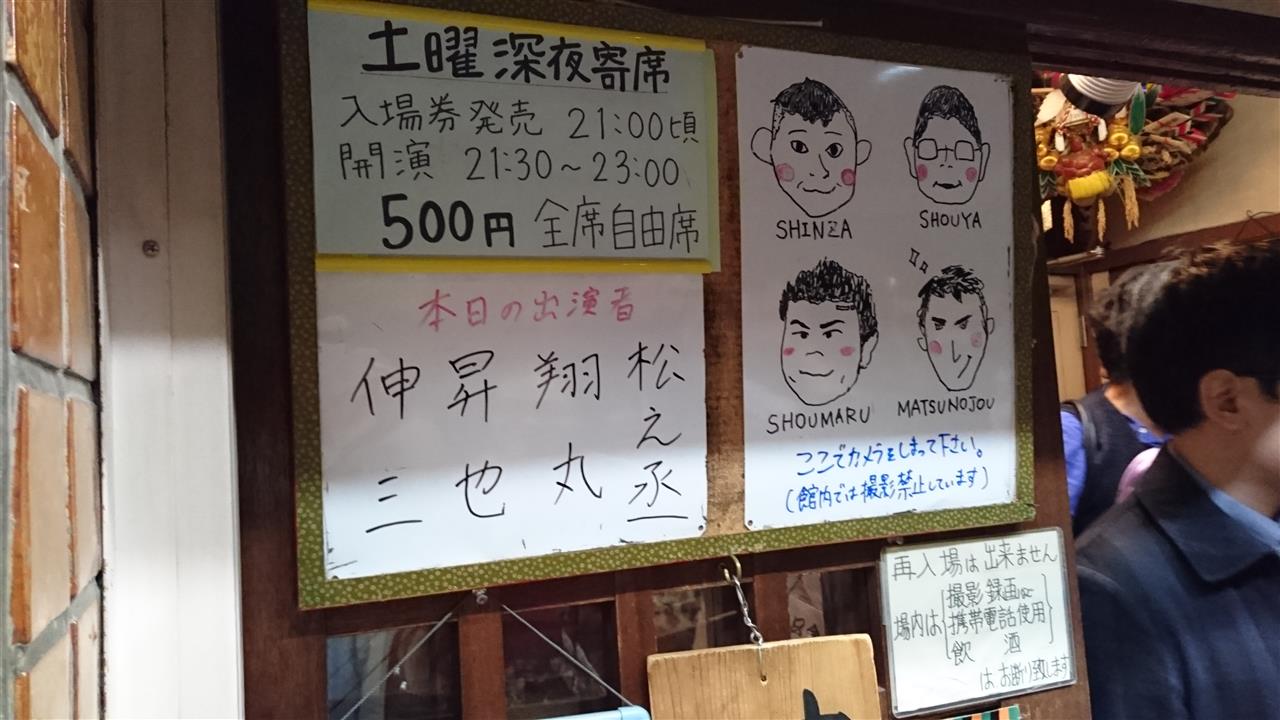 土曜深夜寄席
入場券発売 21:00頃
開演 21:30～23:00
500円 全席自由席
本日の出演者
松之丞
翔丸
昇也
伸三
SHINZA
SHOUYA
SHOUMARU
MATSUNOJOU
ここでカメラをしまって下さい。
(館内では撮影禁止しています)
再入場は出来ません
場内は
撮影録画
携帯電話使用
飲酒
はお断り致します